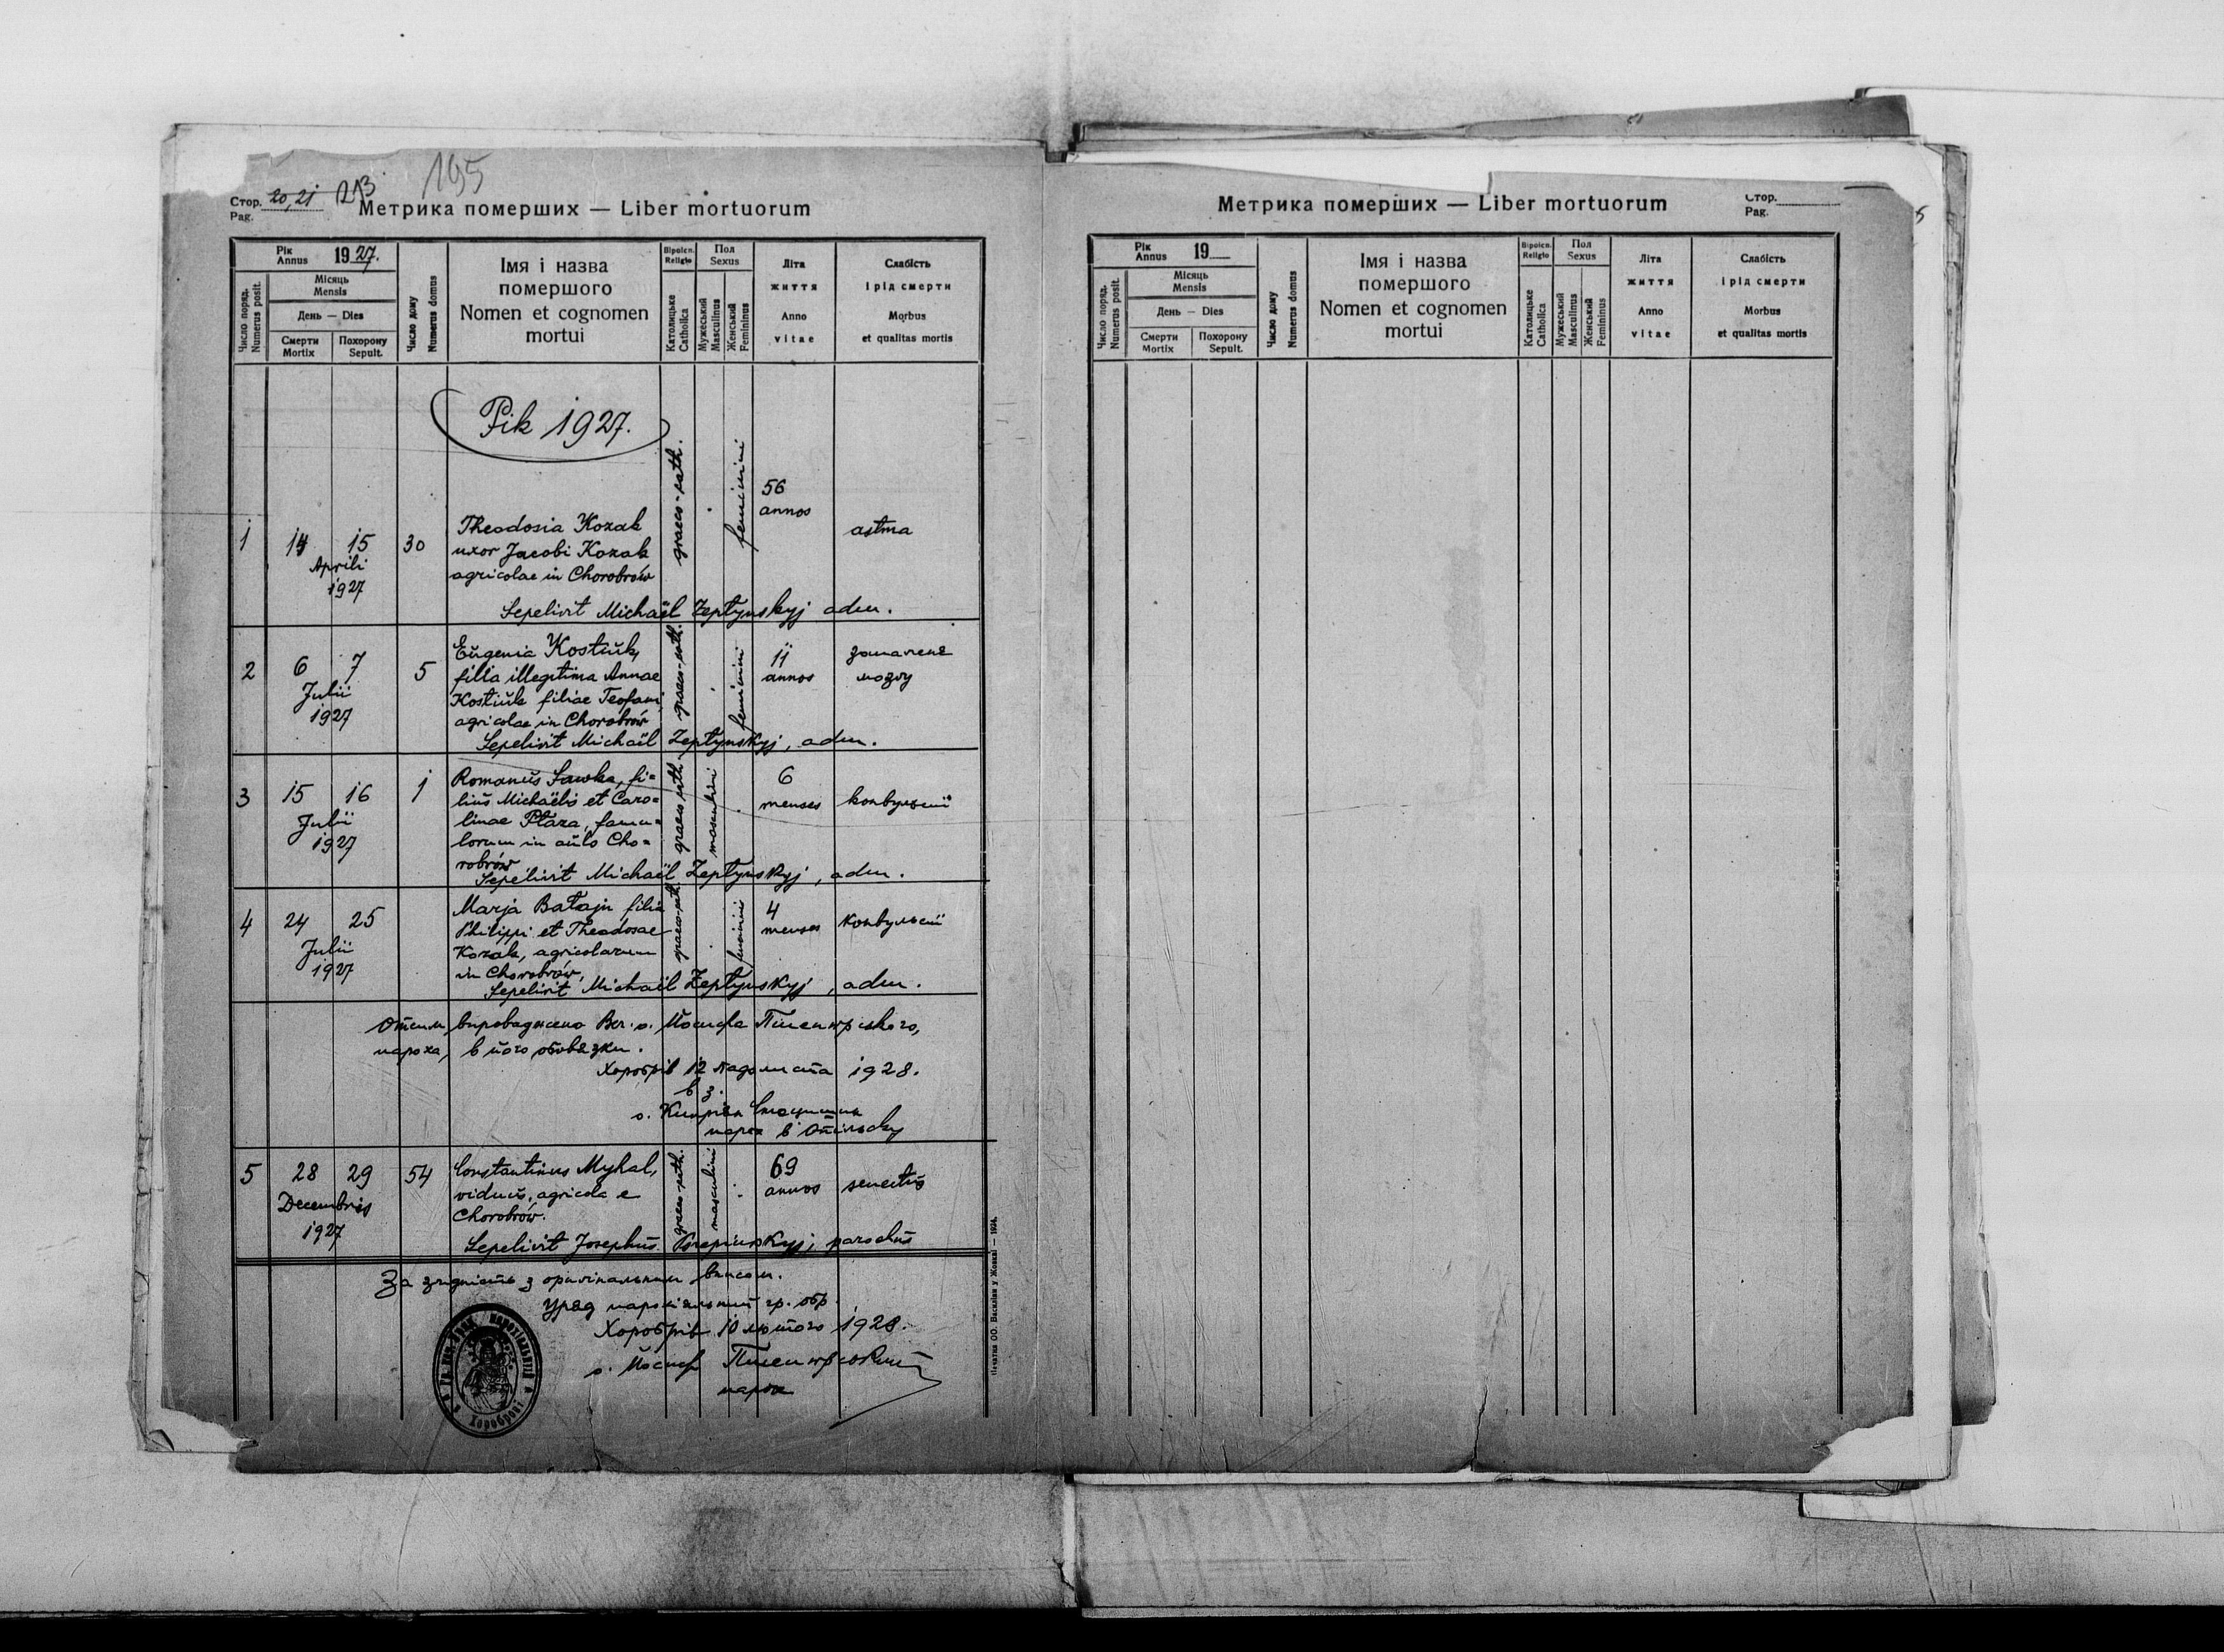 195
Стор. 20, 21 213
Pag.
Метрика померших — Liber mortuorum
Рік
Annus 1927.
Число поряд.
Numerus posit.
Місяць
Mensis
День — Dies
Смерти
Mortix
Похорону
Sepult.
Число дому
Numerus domus
Імя і назва
помершого
Nomen et cognomen
mortui
Віроісп.
Religio
Католицьке
Catholica
Пол
Sexus
Мужеський
Masculinus
Женський
Femininus
Літа
життя
Anno
vitae
Слабість
і рід смерти
Morbus
et qualitas mortis
Рік 1927.
1
14 15
Aprili
1927
30
Theodosia Kozak
uxor Jacobi Kozak
agricolae in Chorobrów
graeco-cath.
feminini
56
annos
astma
Sepelivit Michaël Zeptynskyj adm.
2
6 7
Julii
1927
5
Eugenia Kostiuk,
filia illegitima Annae
Kostiuk filiae Teofani
agricolae in Chorobrów
graeco-cath.
feminini
11
annos
запаленє
мозку
Sepelivit Michaël Zeptynskyj, adm.
3
15 16
Julii
1927
1
Romanus Sawka, fi=
lius Michaëlis et Caro=
linae Ptaza, famu=
lorum in aulo Cho=
robrów
graeco-cath.
masculini
6
menses
конвульсії
Sepelivit Michaël Zeptynskyj, adm.
4
24 25
Julii
1927
Marja Bataju filia
Philippi et Theodosae
Kozak, agricolarum
in Chorobrów,
graeco-cath.
feminini
4
menses
конвульсії
Sepelivit Michaël Zeptynskyj, adm.
Отсим впроваджено Вп. о. Йосифа
пароха, в його обовязки.
Хоробрів 12 падолиста 1928.
в з.
о. Кипріян
парох в
5
28 29
Decembris
1927
54
Constantinus Myhal,
viduus, agricola e
Chorobrów.
graeco-cath.
masculini
69
annos
senectus
Sepelivit Josephus parochus
За згідність з оригінальним вписом.
Уряд парохіяльний гр. обр.
Хоробрів 10 лютого 1928.
о. Йосиф
парох
Печатня ОО. Василіян у Жовкві — 1924.
Метрика померших — Liber mortuorum
Стор.
Pag.
Рік
Annus 19
Число поряд.
Numerus posit.
Місяць
Mensis
День — Dies
Смерти
Mortix
Похорону
Sepult.
Число дому
Numerus domus
Імя і назва
помершого
Nomen et cognomen
mortui
Віроісп.
Religio
Католицьке
Catholica
Пол
Sexus
Мужеський
Masculinus
Женський
Femininus
Літа
життя
Anno
vitae
Слабість
і рід смерти
Morbus
et qualitas mortis